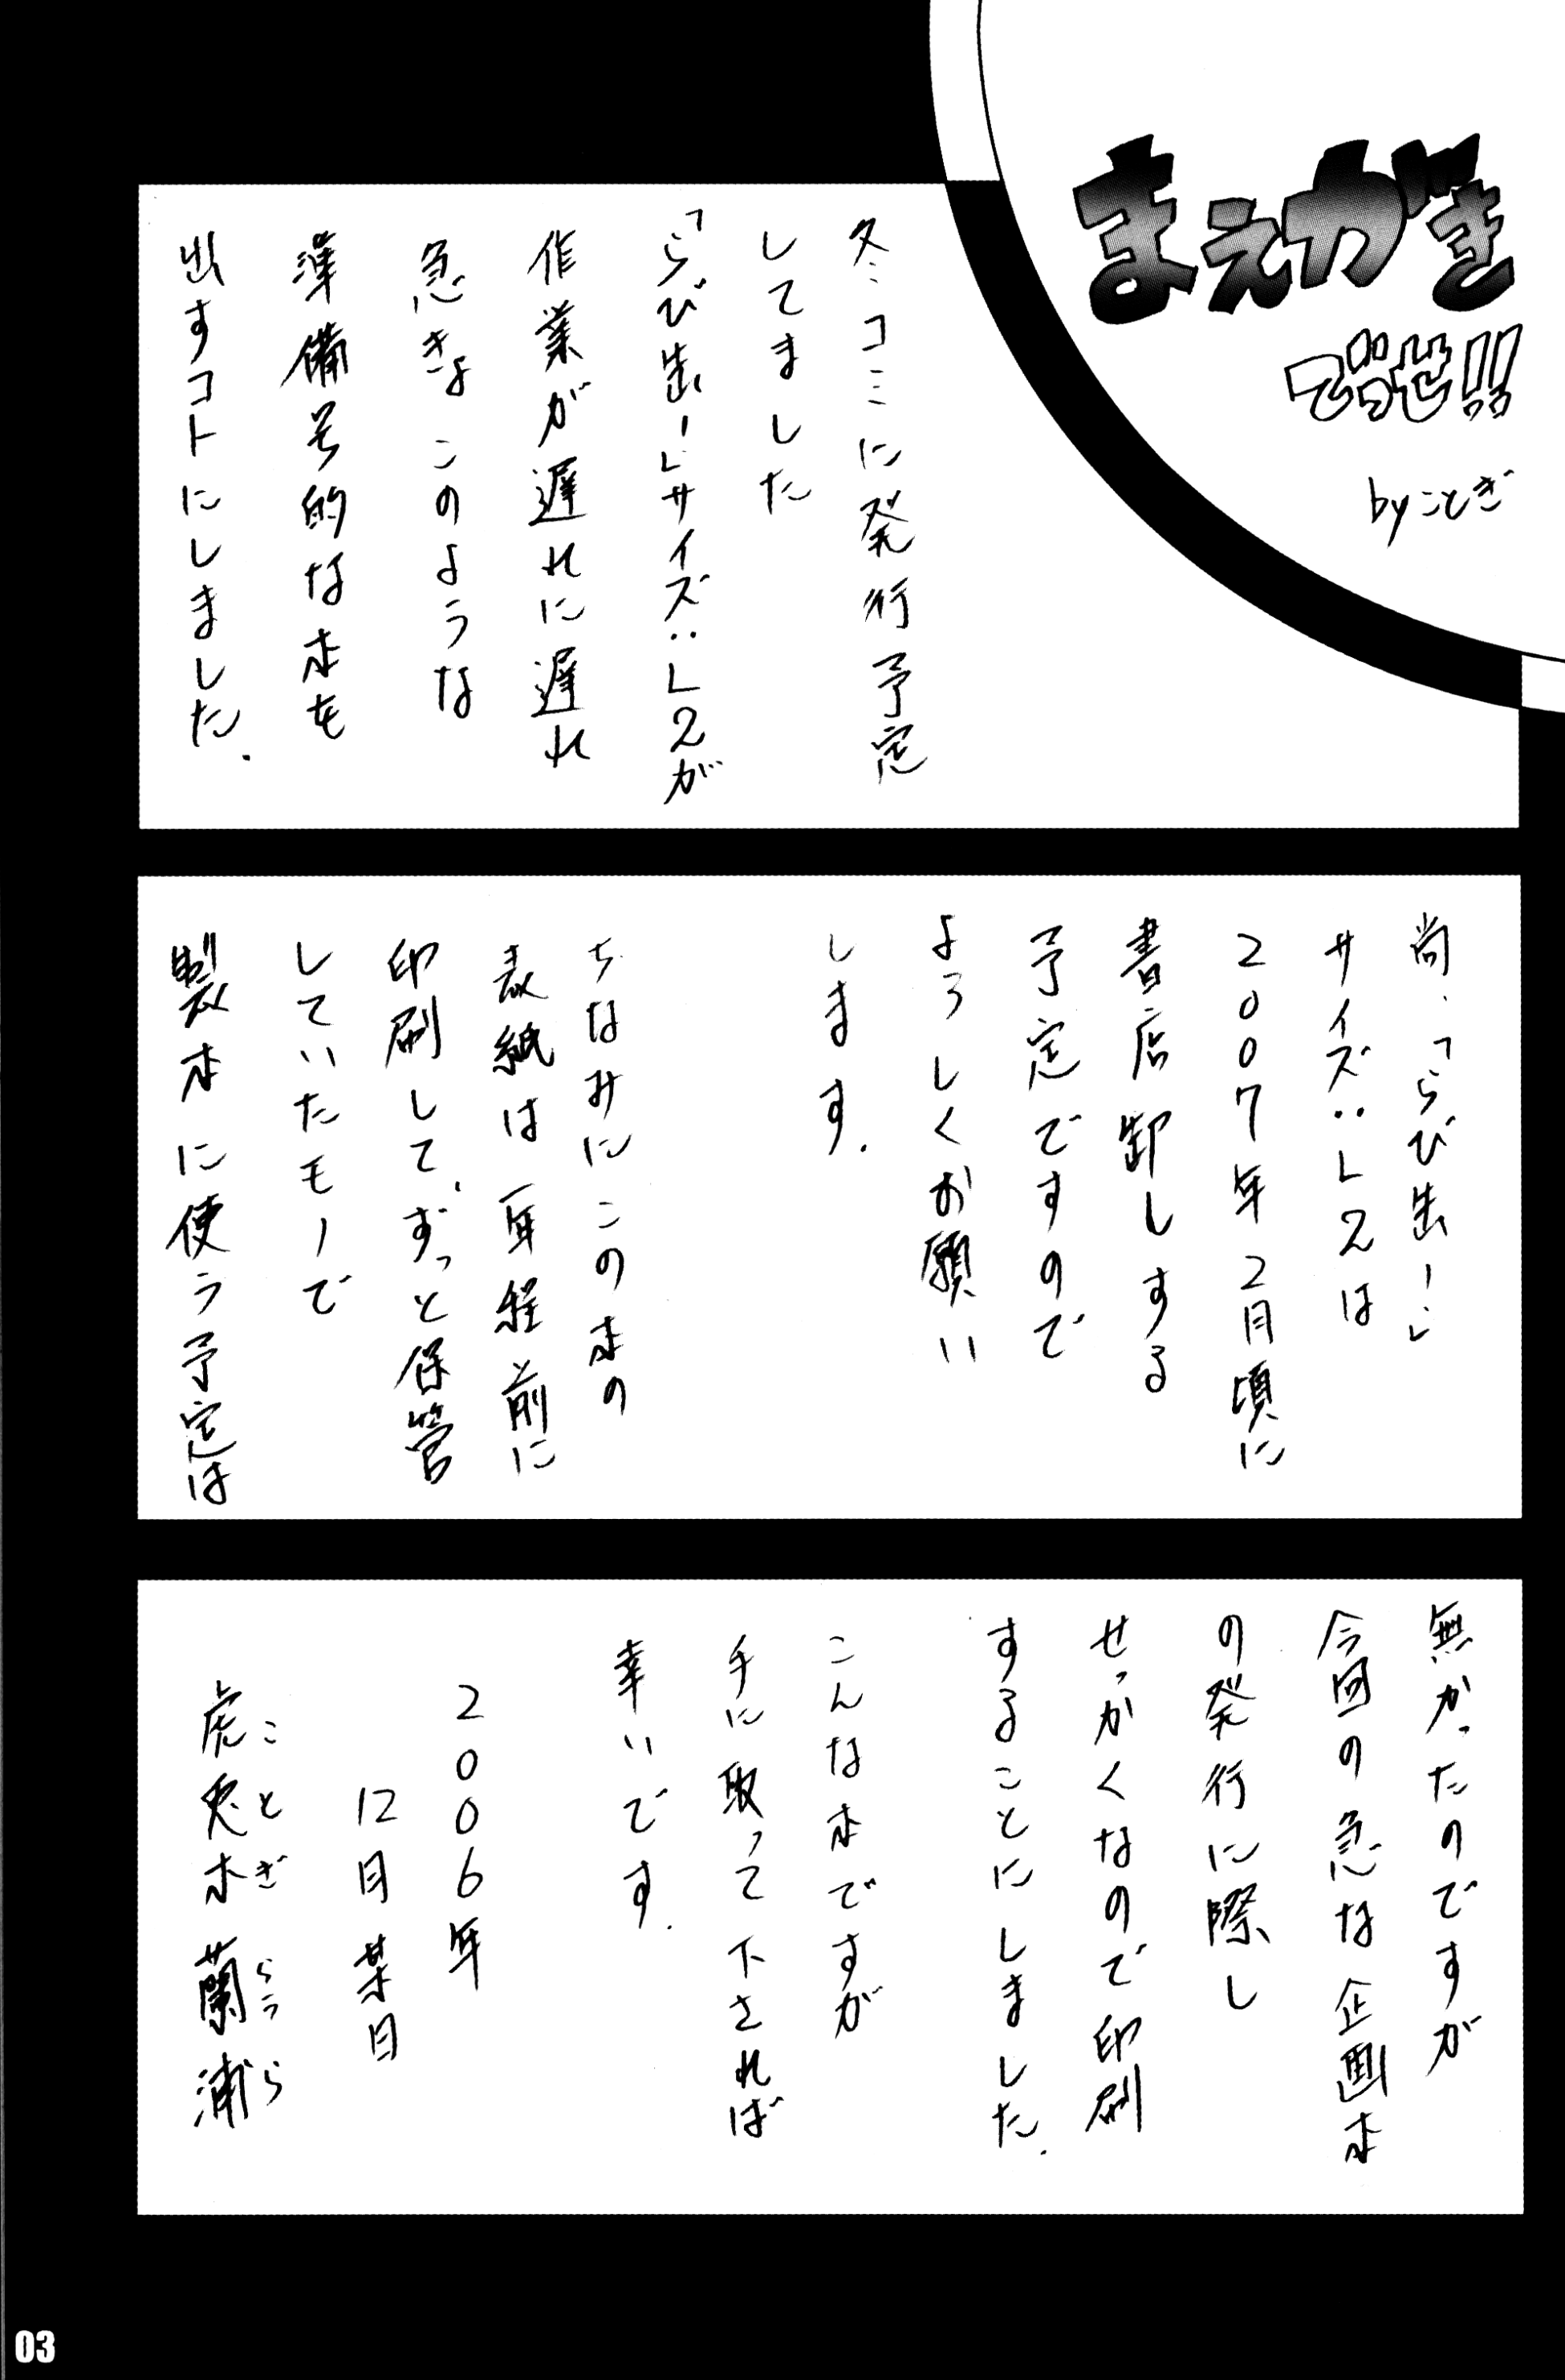 まえがき
でっせ!!
byことぎ
冬コミに発行予定
してました
「らび出し」サイズ:L2が
作業が遅れに遅れ
急きょこのような
準備号的な本を
出すコトにしました.
尚、「らび出し」
サイズ:L2は
2007年2月頃に
書店卸しする
予定ですので
よろしくお願い
します.
ちなみにこの本の
表紙は一年程前に
印刷して、ずっと保管
していたモノで
製本に使う予定は
無かったのですが
今回の急な企画本
の発行に際し
せっかくなので印刷
することにしました.
こんな本ですが
手に取って下されば
幸いです.
2006年
12月某日
ことぎ らうら
虎兎木 蘭浦
03